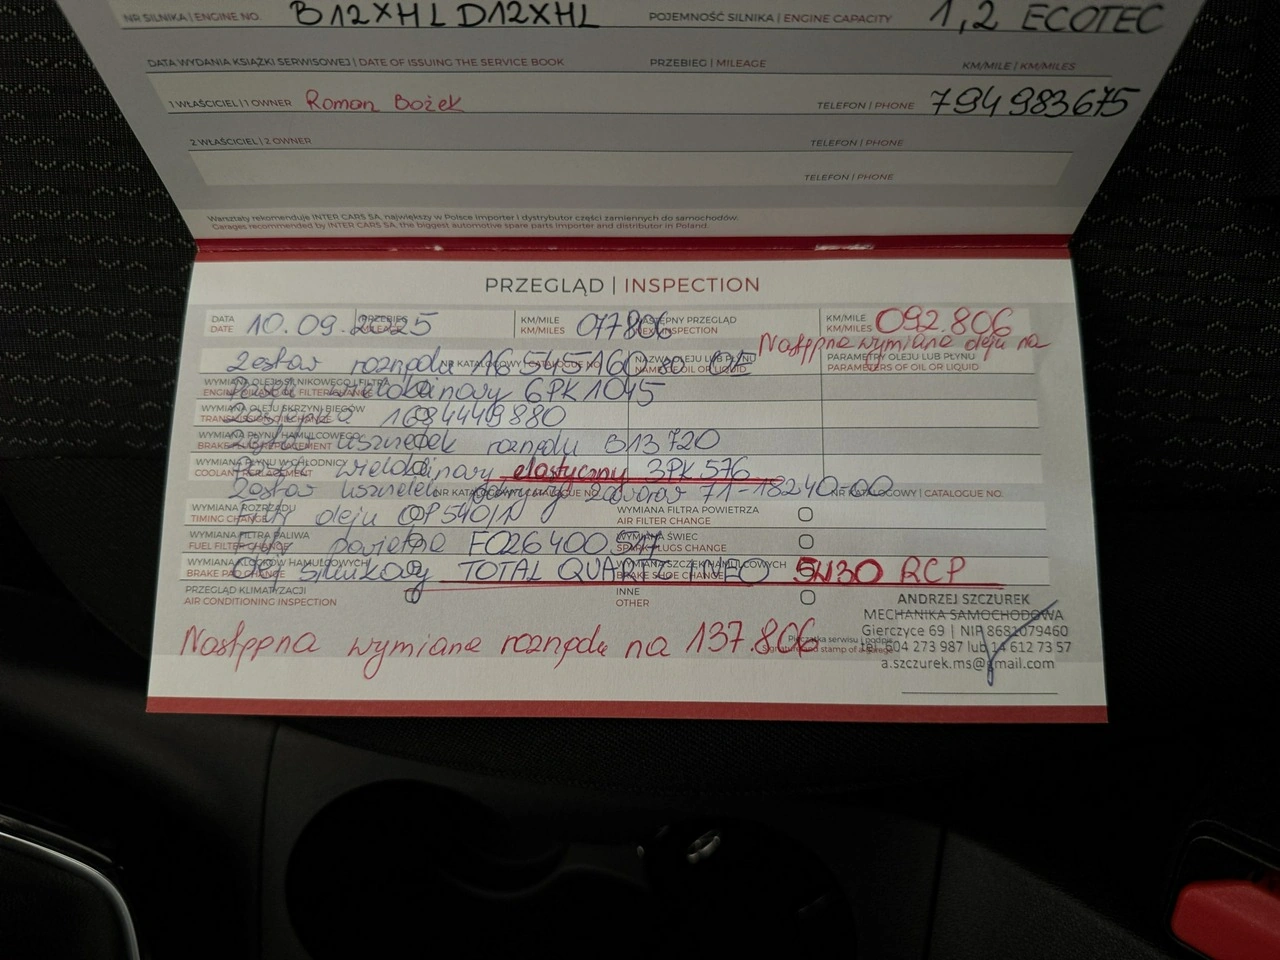 NR SILNIKA | ENGINE NO. B12XHL D12XHL POJEMNOŚĆ SILNIKA | ENGINE CAPACITY 1,2 ECOTEC
DATA WYDANIA KSIĄŻKI SERWISOWEJ | DATE OF ISSUING THE SERVICE BOOK PRZEBIEG | MILEAGE KM/MILE | KM/MILES
1 WŁAŚCICIEL | 1 OWNER Roman Bożek TELEFON | PHONE 794 983675
2 WŁAŚCICIEL | 2 OWNER TELEFON | PHONE
TELEFON | PHONE
Warsztaty rekomenduje INTER CARS SA, największy w Polsce importer i dystrybutor części zamiennych do samochodów.
Garages recommended by INTER CARS SA, the biggest automotive spare parts importer and distributor in Poland.
PRZEGLĄD | INSPECTION
DATA 10.09.2025 PRZEBIEG KM/MILE 077806 NASTĘPNY PRZEGLĄD KM/MILE 092.806
DATE MILEAGE KM/MILES NEXT INSPECTION KM/MILES
Następna wymiana oleju na
Zestaw rozrządu NR KATALOGOWY | CATALOGUE NO. NAZWA OLEJU LUB PŁYNU PARAMETRY OLEJU LUB PŁYNU
NAME OF OIL OR LIQUID PARAMETERS OF OIL OR LIQUID
WYMIANA OLEJU SILNIKOWEGO I FILTRA wielorowkowy 6PK1045
WYMIANA OLEJU SKRZYNI BIEGÓW 1684449880
TRANSMISSION OIL CHANGE
WYMIANA PŁYNU HAMULCOWEGO uszczelek rozrządu B13720
BRAKE FLUID REPLACEMENT
WYMIANA PŁYNU W CHŁODNICY elastyczny 3PK 576
COOLANT REPLACEMENT
Zestaw uszczelek pokrywy zaworów 71-18240-00 NR KATALOGOWY | CATALOGUE NO.
WYMIANA ROZRZĄDU Filtr oleju OP540/1 WYMIANA FILTRA POWIETRZA
TIMING CHANGE AIR FILTER CHANGE
WYMIANA FILTRA PALIWA powietrza F026400 WYMIANA ŚWIEC
FUEL FILTER CHANGE SPARK PLUGS CHANGE
WYMIANA KLOCKÓW HAMULCOWYCH Olej silnikowy TOTAL QUARTZ INEO 5W30 RCP WYMIANA SZCZĘK HAMULCOWYCH
BRAKE PAD CHANGE BRAKE SHOE CHANGE
PRZEGLĄD KLIMATYZACJI INNE
AIR CONDITIONING INSPECTION OTHER
ANDRZEJ SZCZUREK
MECHANIKA SAMOCHODOWA
Gierczyce 69 | NIP 8681079460
tel. 604 273 987 lub 14 612 73 57
a.szczurek.ms@gmail.com
Następna wymiana rozrządu na 137.806